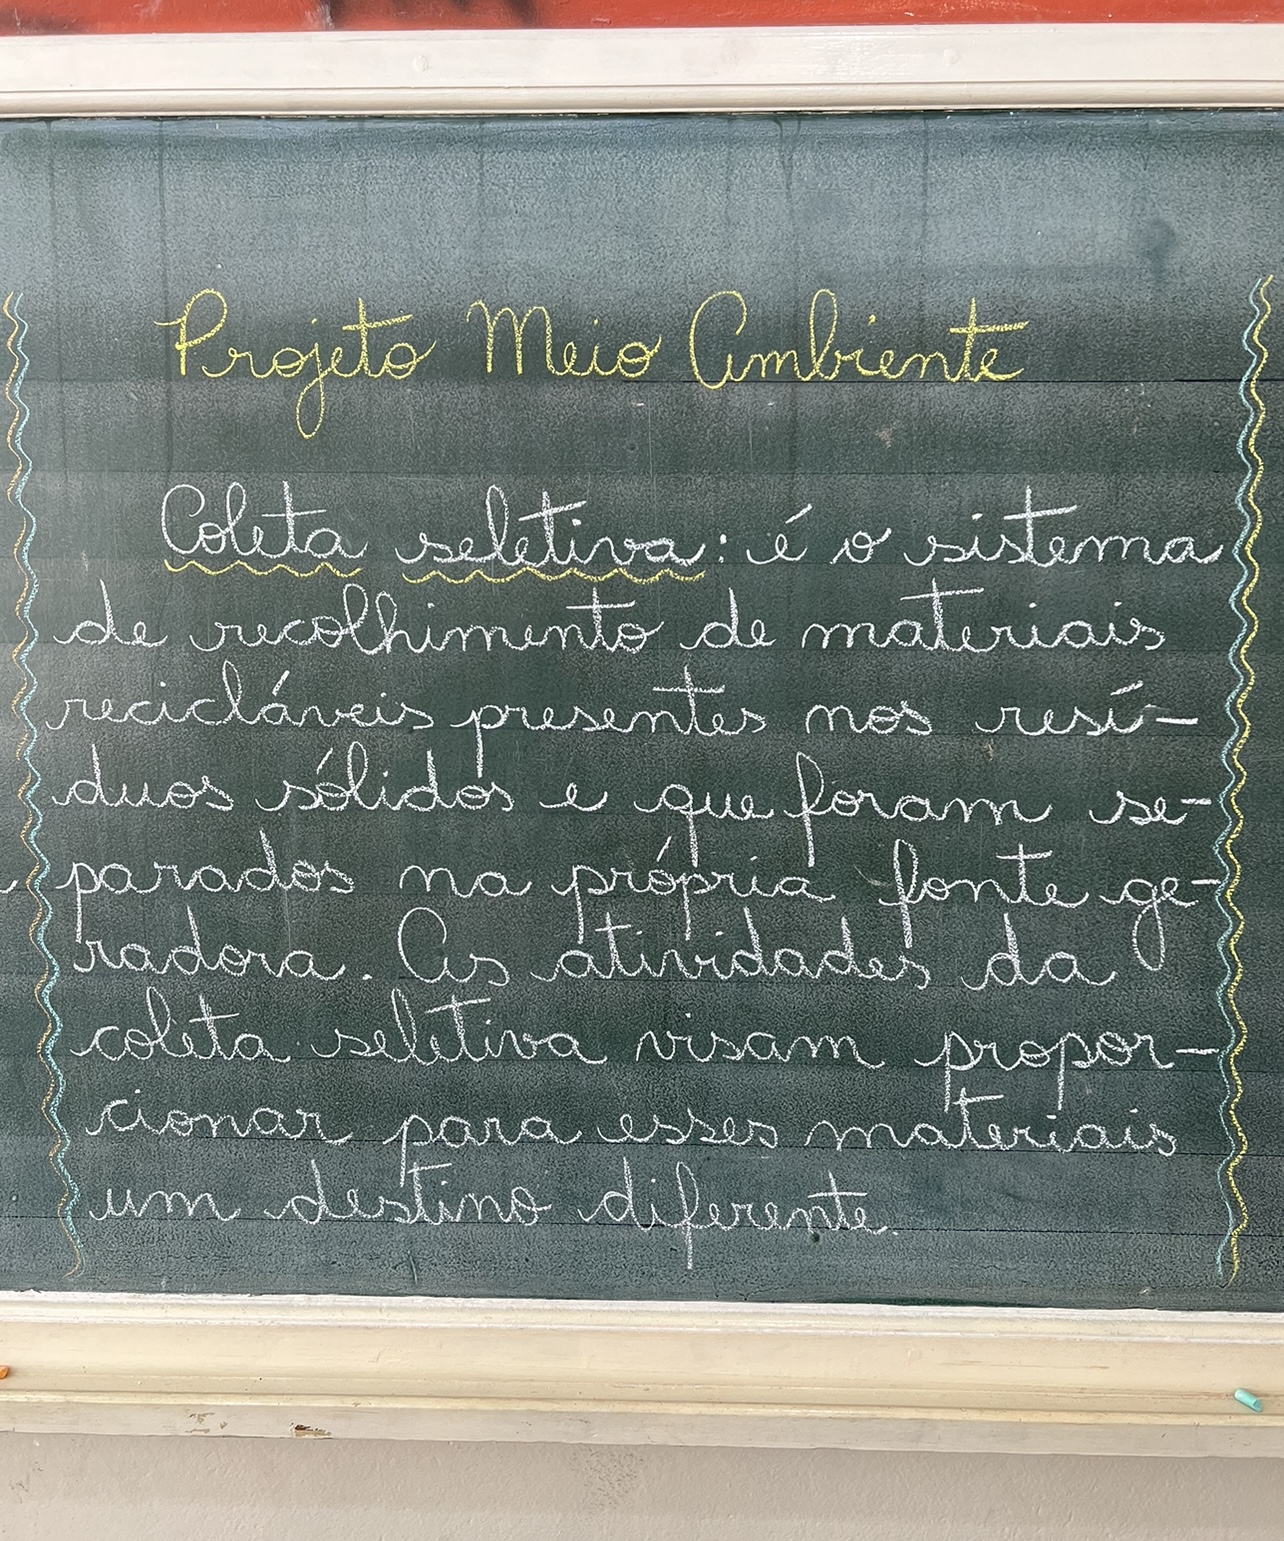 Projeto Meio Ambiente
Coleta seletiva: é o sistema
de recolhimento de materiais
recicláveis presentes nos resí-
duos sólidos e que foram se-
parados na própria fonte ge-
radora. As atividades da
coleta seletiva visam propor-
cionar para esses materiais
um destino diferente.